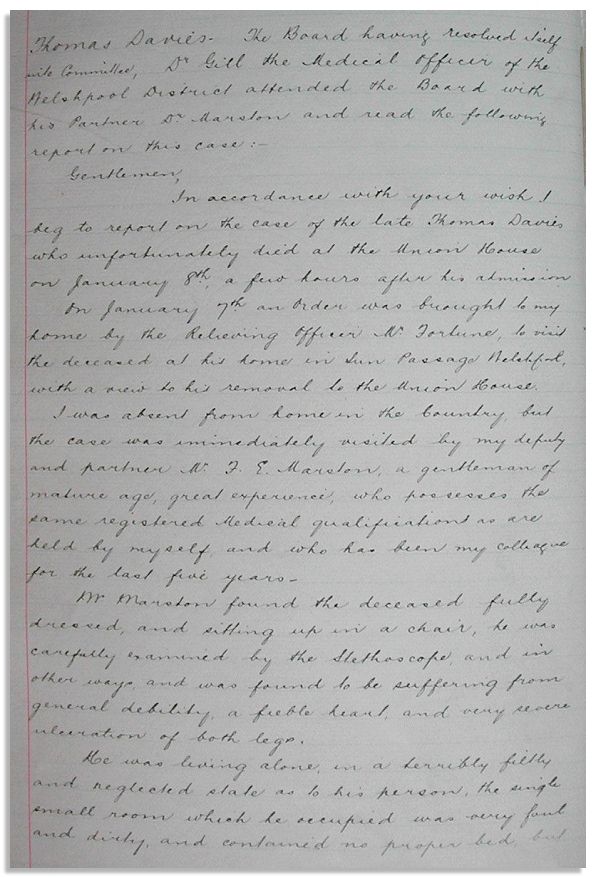 Thomas Davies - The Board having resolved itself
into Committee, Dr Gill the Medical Officer of the
Welshpool District attended the Board with
his Partner Dr Marston and read the following
report on this case:-
Gentlemen,
In accordance with your wish I
beg to report on the case of the late Thomas Davies
who unfortunately died at the Union House
on January 8th, a few hours after his admission
On January 7th an Order was brought to my
home by the Relieving Officer Mr Fortune, to visit
the deceased at his home in Sun Passage Welshpool,
with a view to his removal to the Union House.
I was absent from home in the Country, but
the case was immediately visited by my deputy
and partner Mr F. E. Marston, a gentleman of
mature age, great experience, who possesses the
same registered Medical qualifications as are
held by myself, and who has been my colleague
for the last five years -
Mr Marston found the deceased fully
dressed, and sitting up in a chair, he was
carefully examined by the Stethoscope, and in
other ways, and was found to be suffering from
general debility, a fieble heart, and very severe
ulceration of both legs.
He was living alone, in a terribly filthy
and neglected state as to his person, the single
small room which he occupied was very foul
and dirty, and contained no proper bed, but